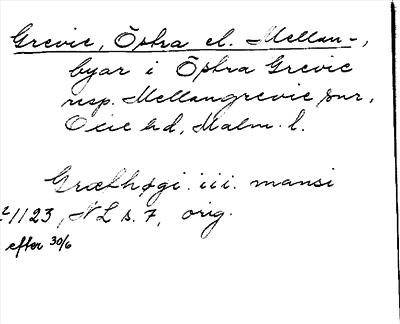 Grevie, Östra el. Mellan-,
byar i Östra Grevie
resp. Mellangrevie snr,
Oxie hd, Malm. l.
Græthøgi iii mansi
1123, NL s. 7, orig.
efter 30/6